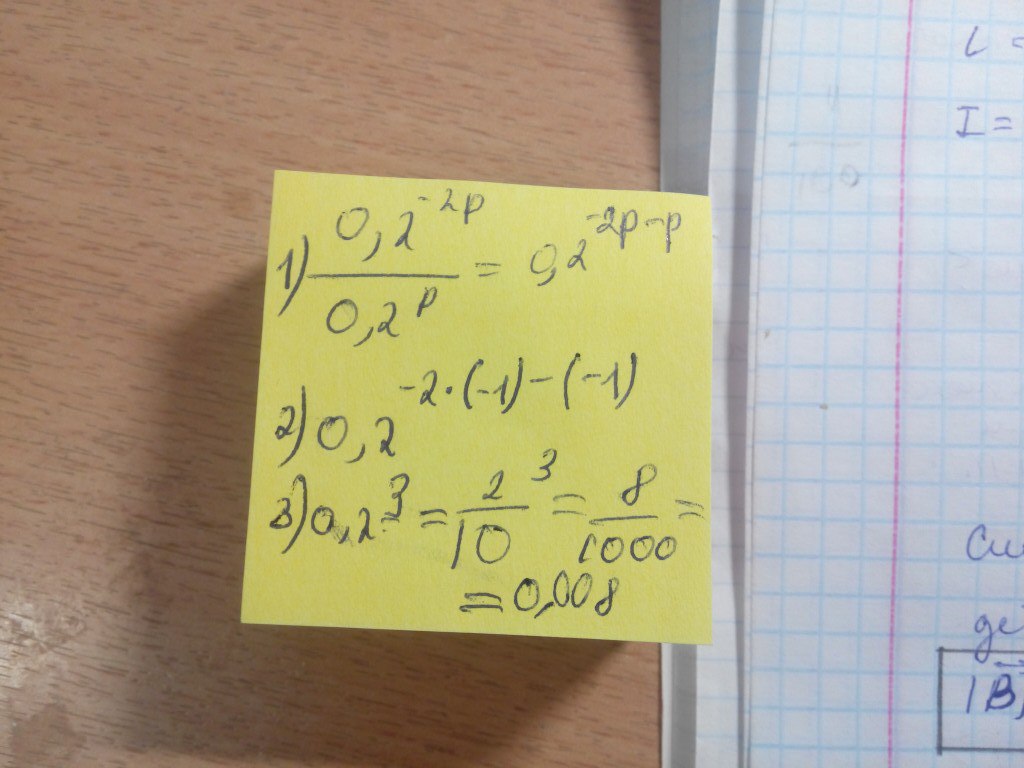 1) 0,2^-2p / 0,2^p = 0,2^-2p-p
2) 0,2^-2·(-1)-(-1)
3) 0,2^3 = 2/10^3 = 8/1000 =
= 0,008
I =
|B